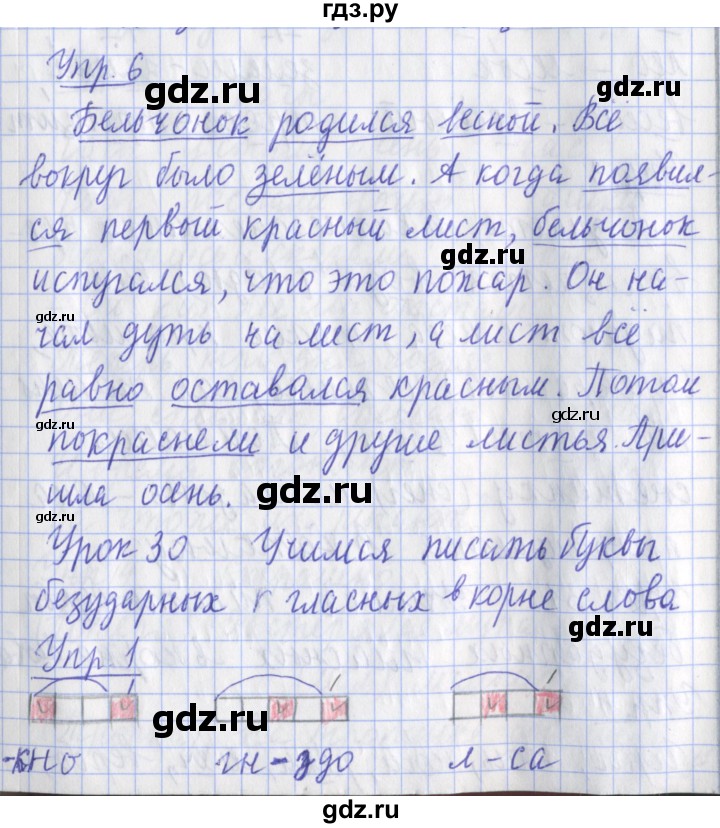 гдз.ру
Упр. 6
gdz.ru
gdz.ru
Бельчонок родился весной. Всё
вокруг было зелёным. А когда появил-
gdz.ru
ся первый красный лист, бельчонок
gdz.ru
испугался, что это пожар. Он на-
gdz.ru
чал дуть на лист, а лист всё
равно оставался красным. Потом
gdz.ru
gdz.ru
покраснели и другие листья. При-
шла осень.
gdz.ru
gdz.ru
Урок 30 Учимся писать буквы
безударных гласных в корне слова
gdz.ru
Упр 1
gdz.ru
-кно гн-здо л-са
gdz.ru
гдз.ру